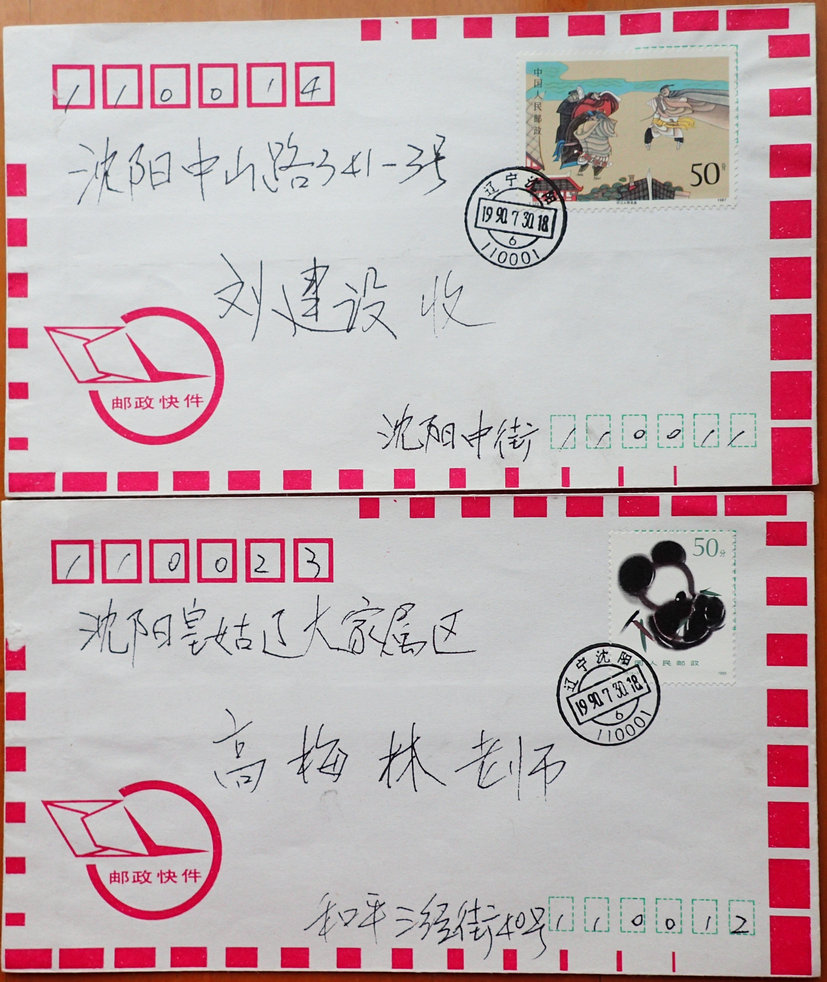 110014
中国人民邮政
50分
沈阳中山路341-3号
辽宁沈阳
1990.7.30.18
6
110001
刘建设 收
邮政快件
沈阳中街 110011
110023
50分
沈阳皇姑辽大家属区
国人民邮政
辽宁沈阳
1990.7.30.18
6
110001
高梅林老师
邮政快件
和平三经街40号 110012